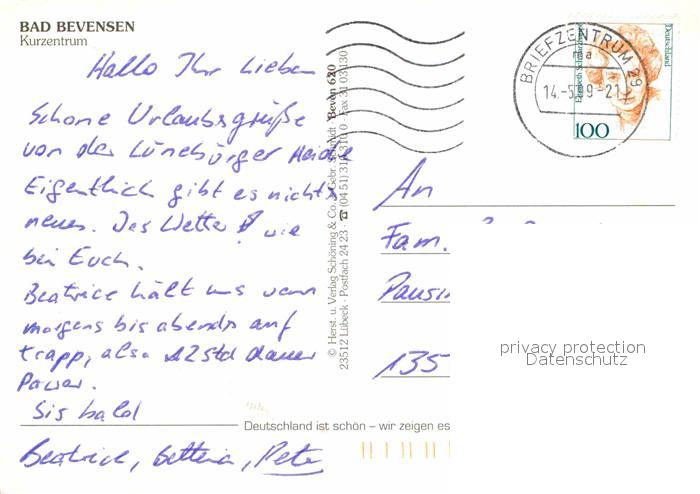 BAD BEVENSEN
Kurzentrum
Hallo Ihr Lieben
Schöne Urlaubsgrüße
von der Lüneburger Heide
Eigentlich gibt es nichts
neues. Das Wetter wie
bei Euch.
Beatrice hält uns von
morgens bis abends auf
trapp, also 12 Std dauer
Power.
Bis bald
Beatrice, Bettina, Peter
© Herst. u. Verlag Schöning & Co. Gebr. Schmidt · Bevon 620
23512 Lübeck · Postfach 24 23 · ☎ (04 51) 3 10 31 0 · Fax 31 03 130
Deutschland ist schön – wir zeigen es
BRIEFZENTRUM 29
ma
14.-5.99-21
Deutschland
100
An
Fam.
135
privacy protection
Datenschutz